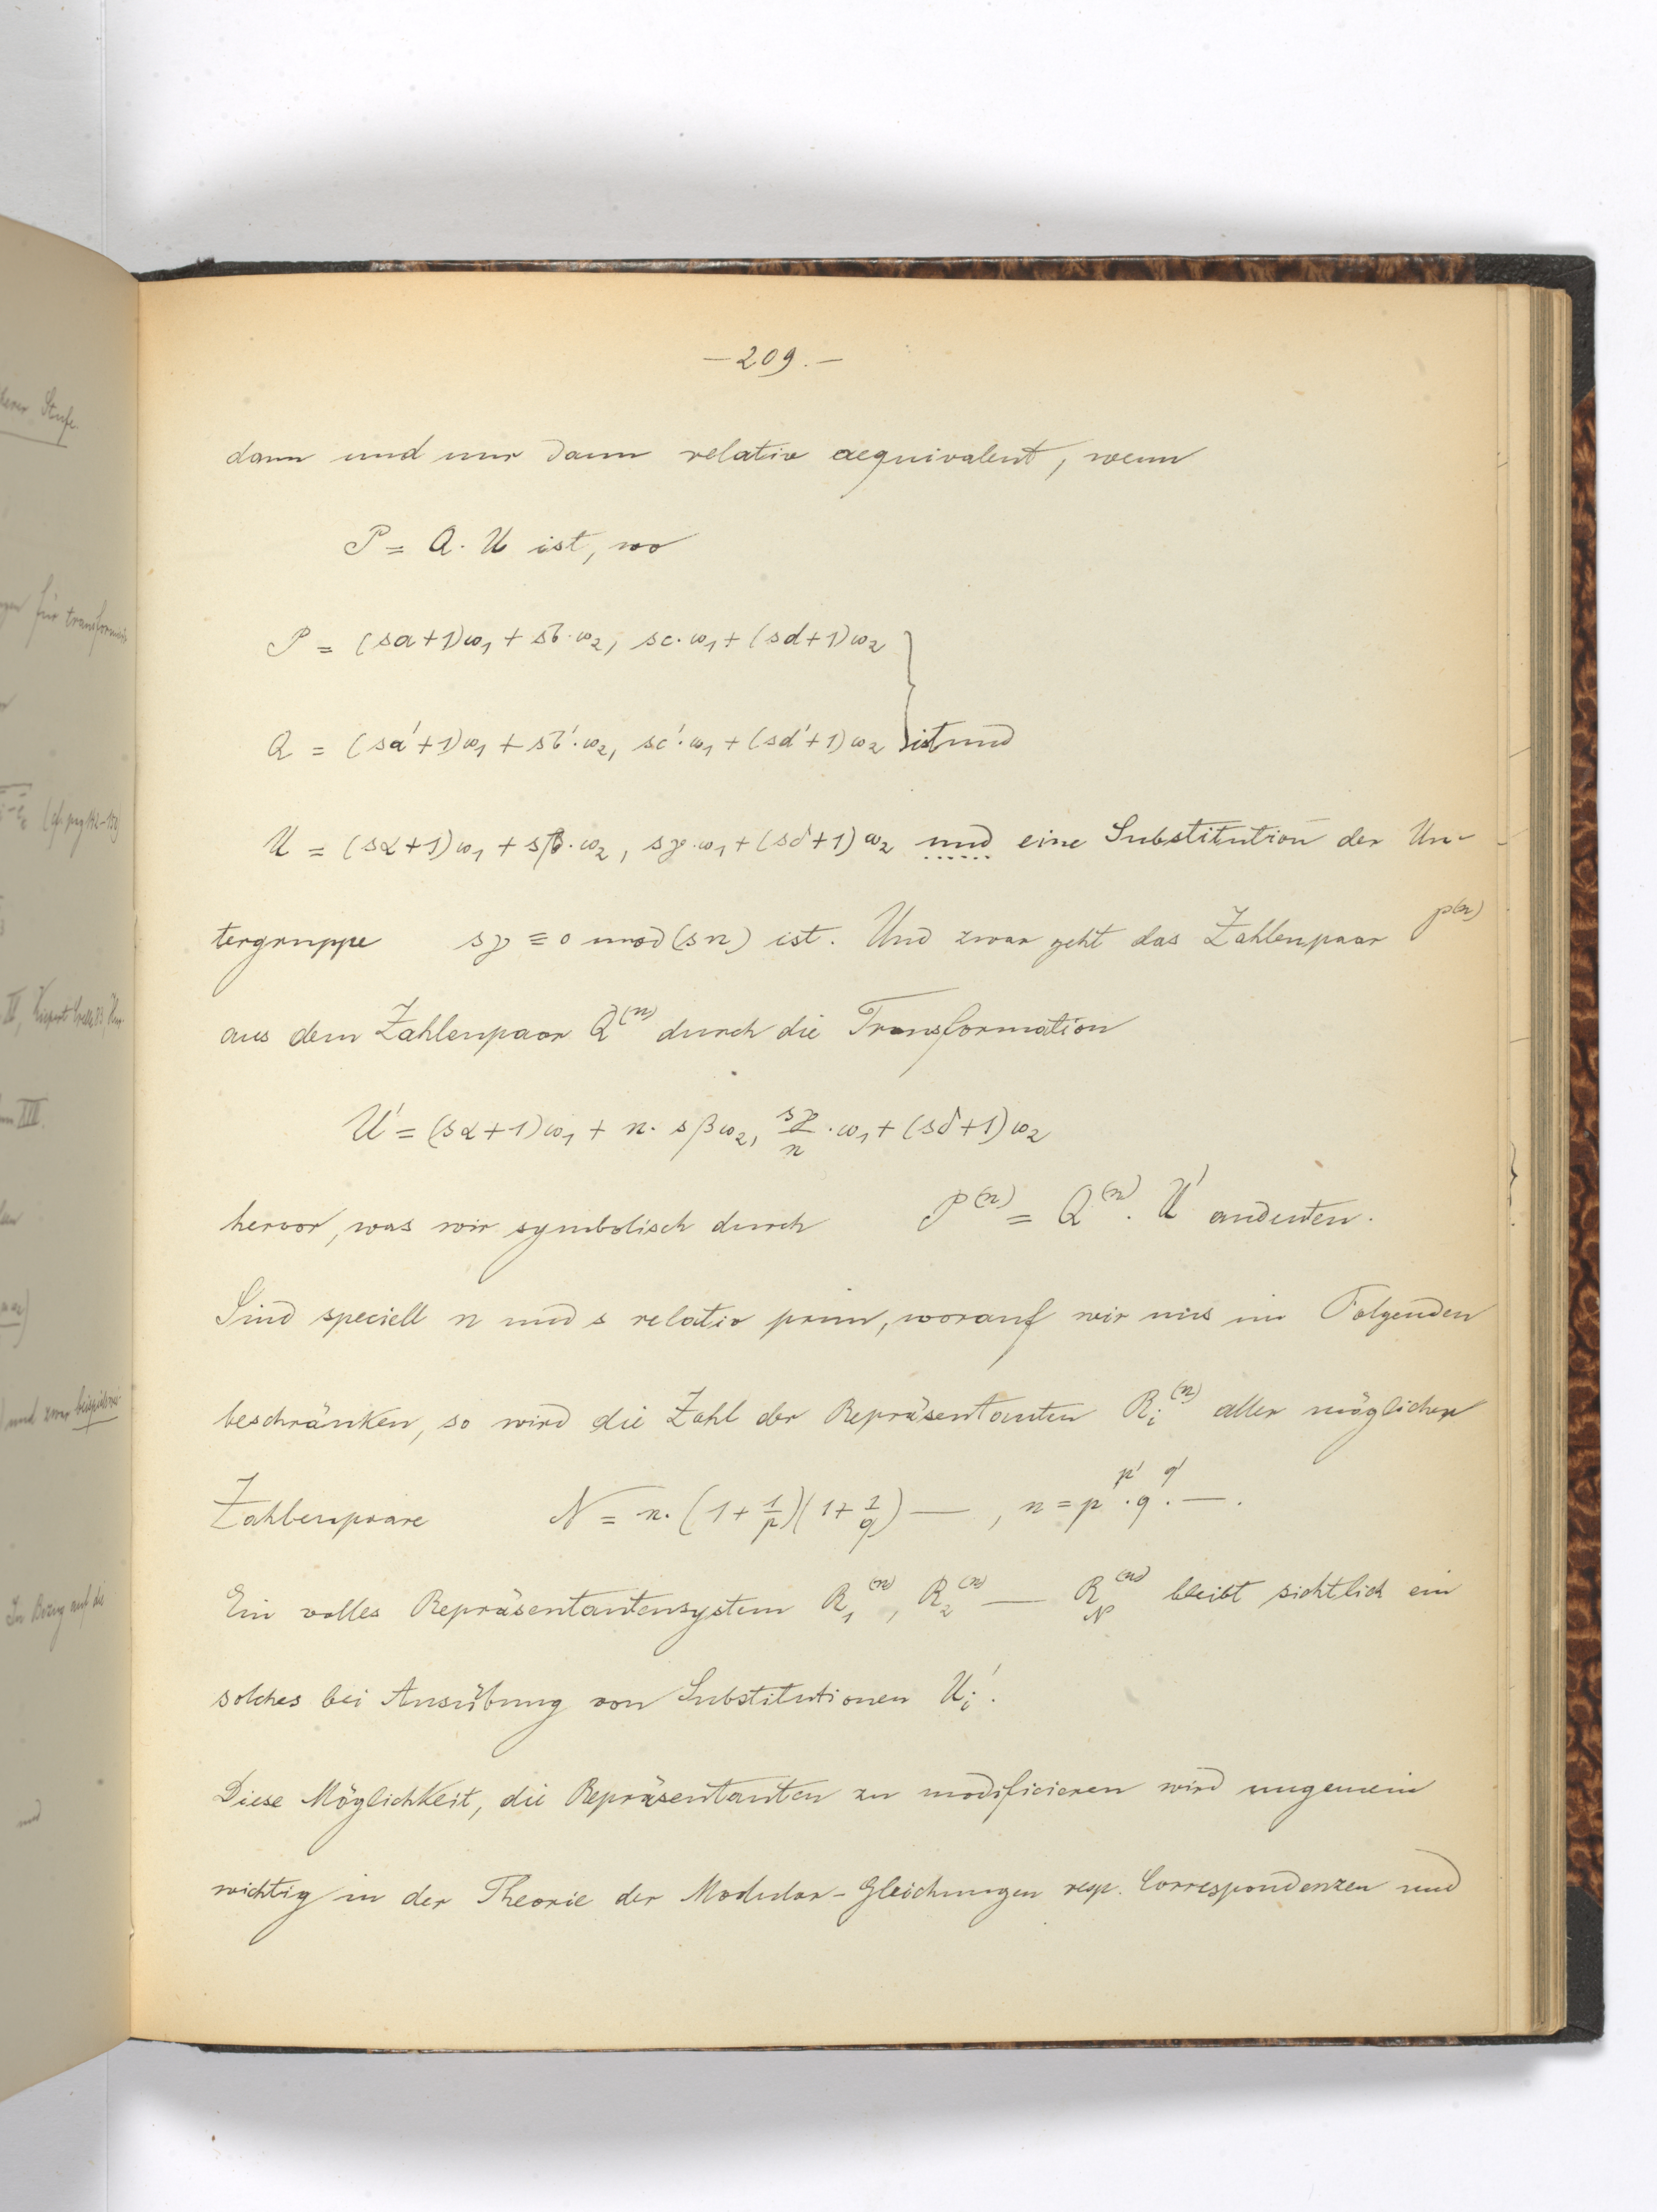 — 209. —
dann und nur dann relativ aequivalent, wenn
P = Q · U ist, wo
P = (sa+1)ω₁ + sb·ω₂, sc·ω₁ + (sd+1)ω₂
Q = (sa'+1)ω₁ + sb'·ω₂, sc'·ω₁ + (sd'+1)ω₂ } ist und
U = (sα+1)ω₁ + sβ·ω₂, sγ·ω₁ + (sδ+1)ω₂ und eine Substitution der Un-
tergruppe sγ ≡ 0 mod (sn) ist. Und zwar geht das Zahlenpaar P⁽ⁿ⁾
aus dem Zahlenpaar Q⁽ⁿ⁾ durch die Transformation
U' = (sα+1)ω₁ + n·sβω₂, sγ/n·ω₁ + (sδ+1)ω₂
hervor, was wir symbolisch durch P⁽ⁿ⁾ = Q⁽ⁿ⁾ · U' andeuten.
Sind speciell n und s relativ prim, worauf wir uns im Folgenden
beschränken, so wird die Zahl der Repräsentanten Rᵢ⁽ⁿ⁾ aller möglichen
Zahlenpaare N = n·(1+1/p)(1+1/q) —, n = p^p'·q^q'·—.
Ein volles Repräsentantensystem R₁⁽ⁿ⁾, R₂⁽ⁿ⁾ — R_N⁽ⁿ⁾ bleibt sichtlich ein
solches bei Ausübung von Substitutionen Uᵢ'.
Diese Möglichkeit, die Repräsentanten zu modificieren wird ungemein
wichtig in der Theorie der Modular-Gleichungen resp. Correspondenzen und